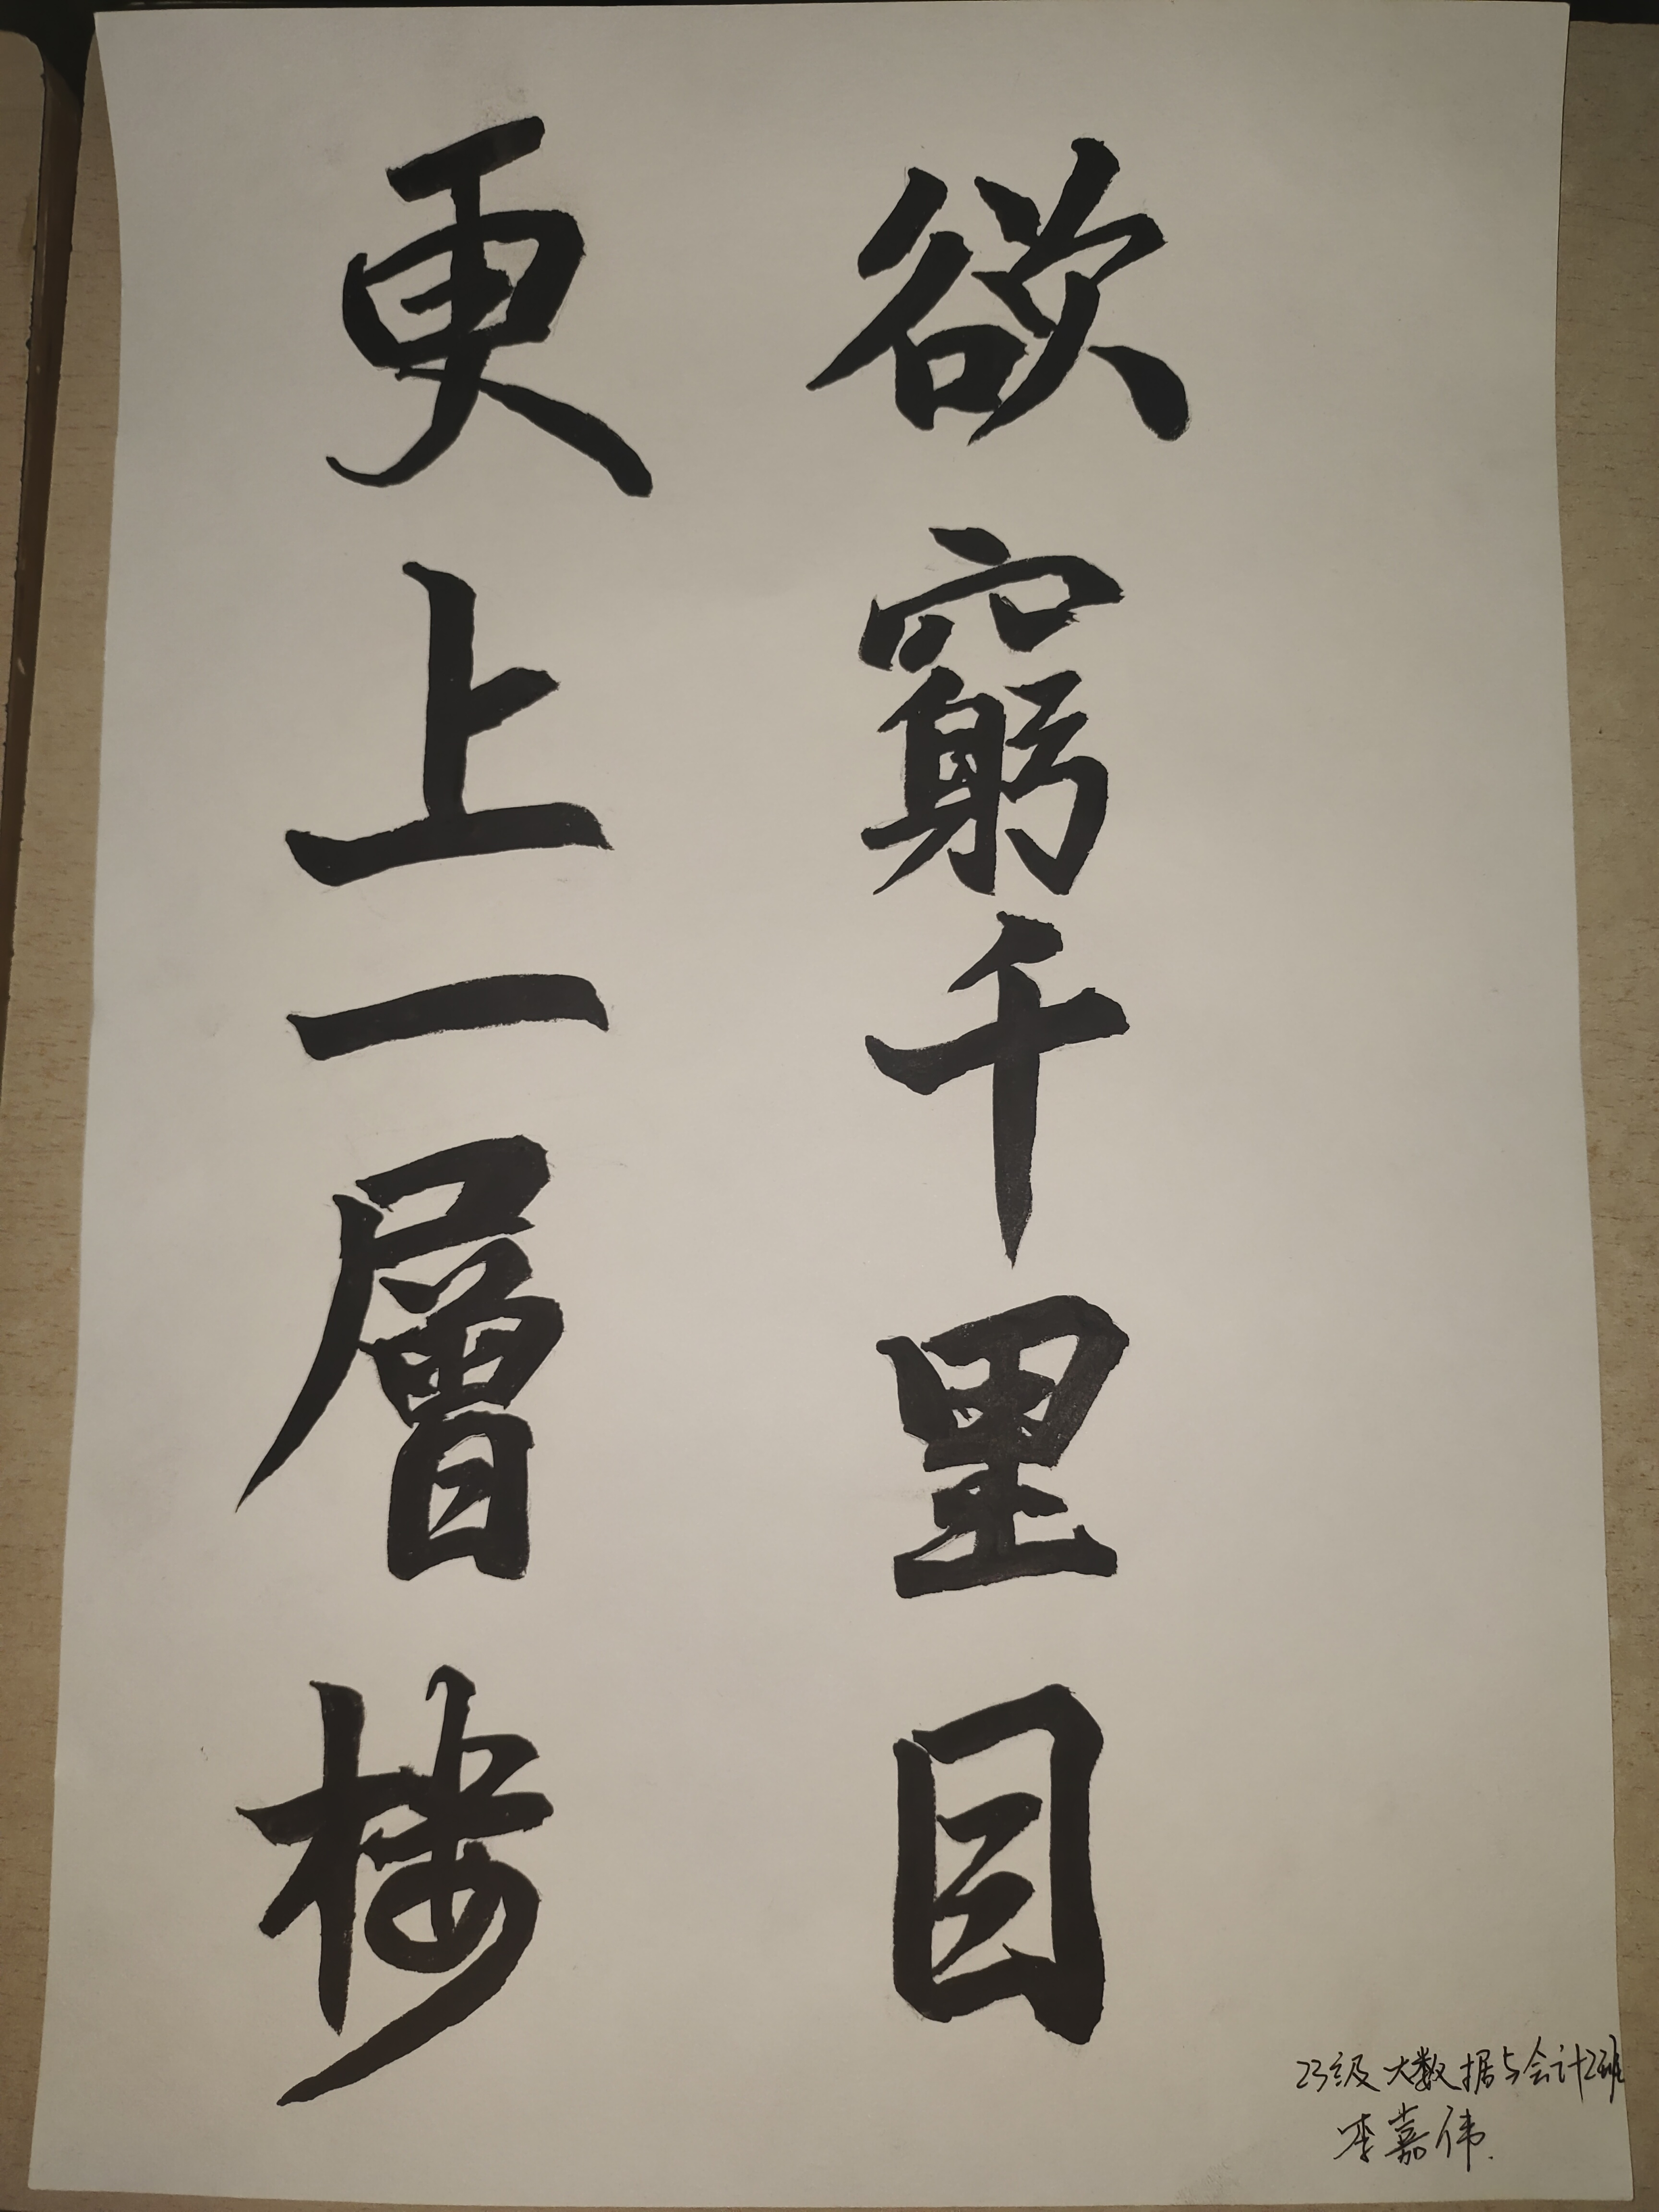 欲窮千里目
更上一層楼
23级大数据与会计2班
李嘉伟.